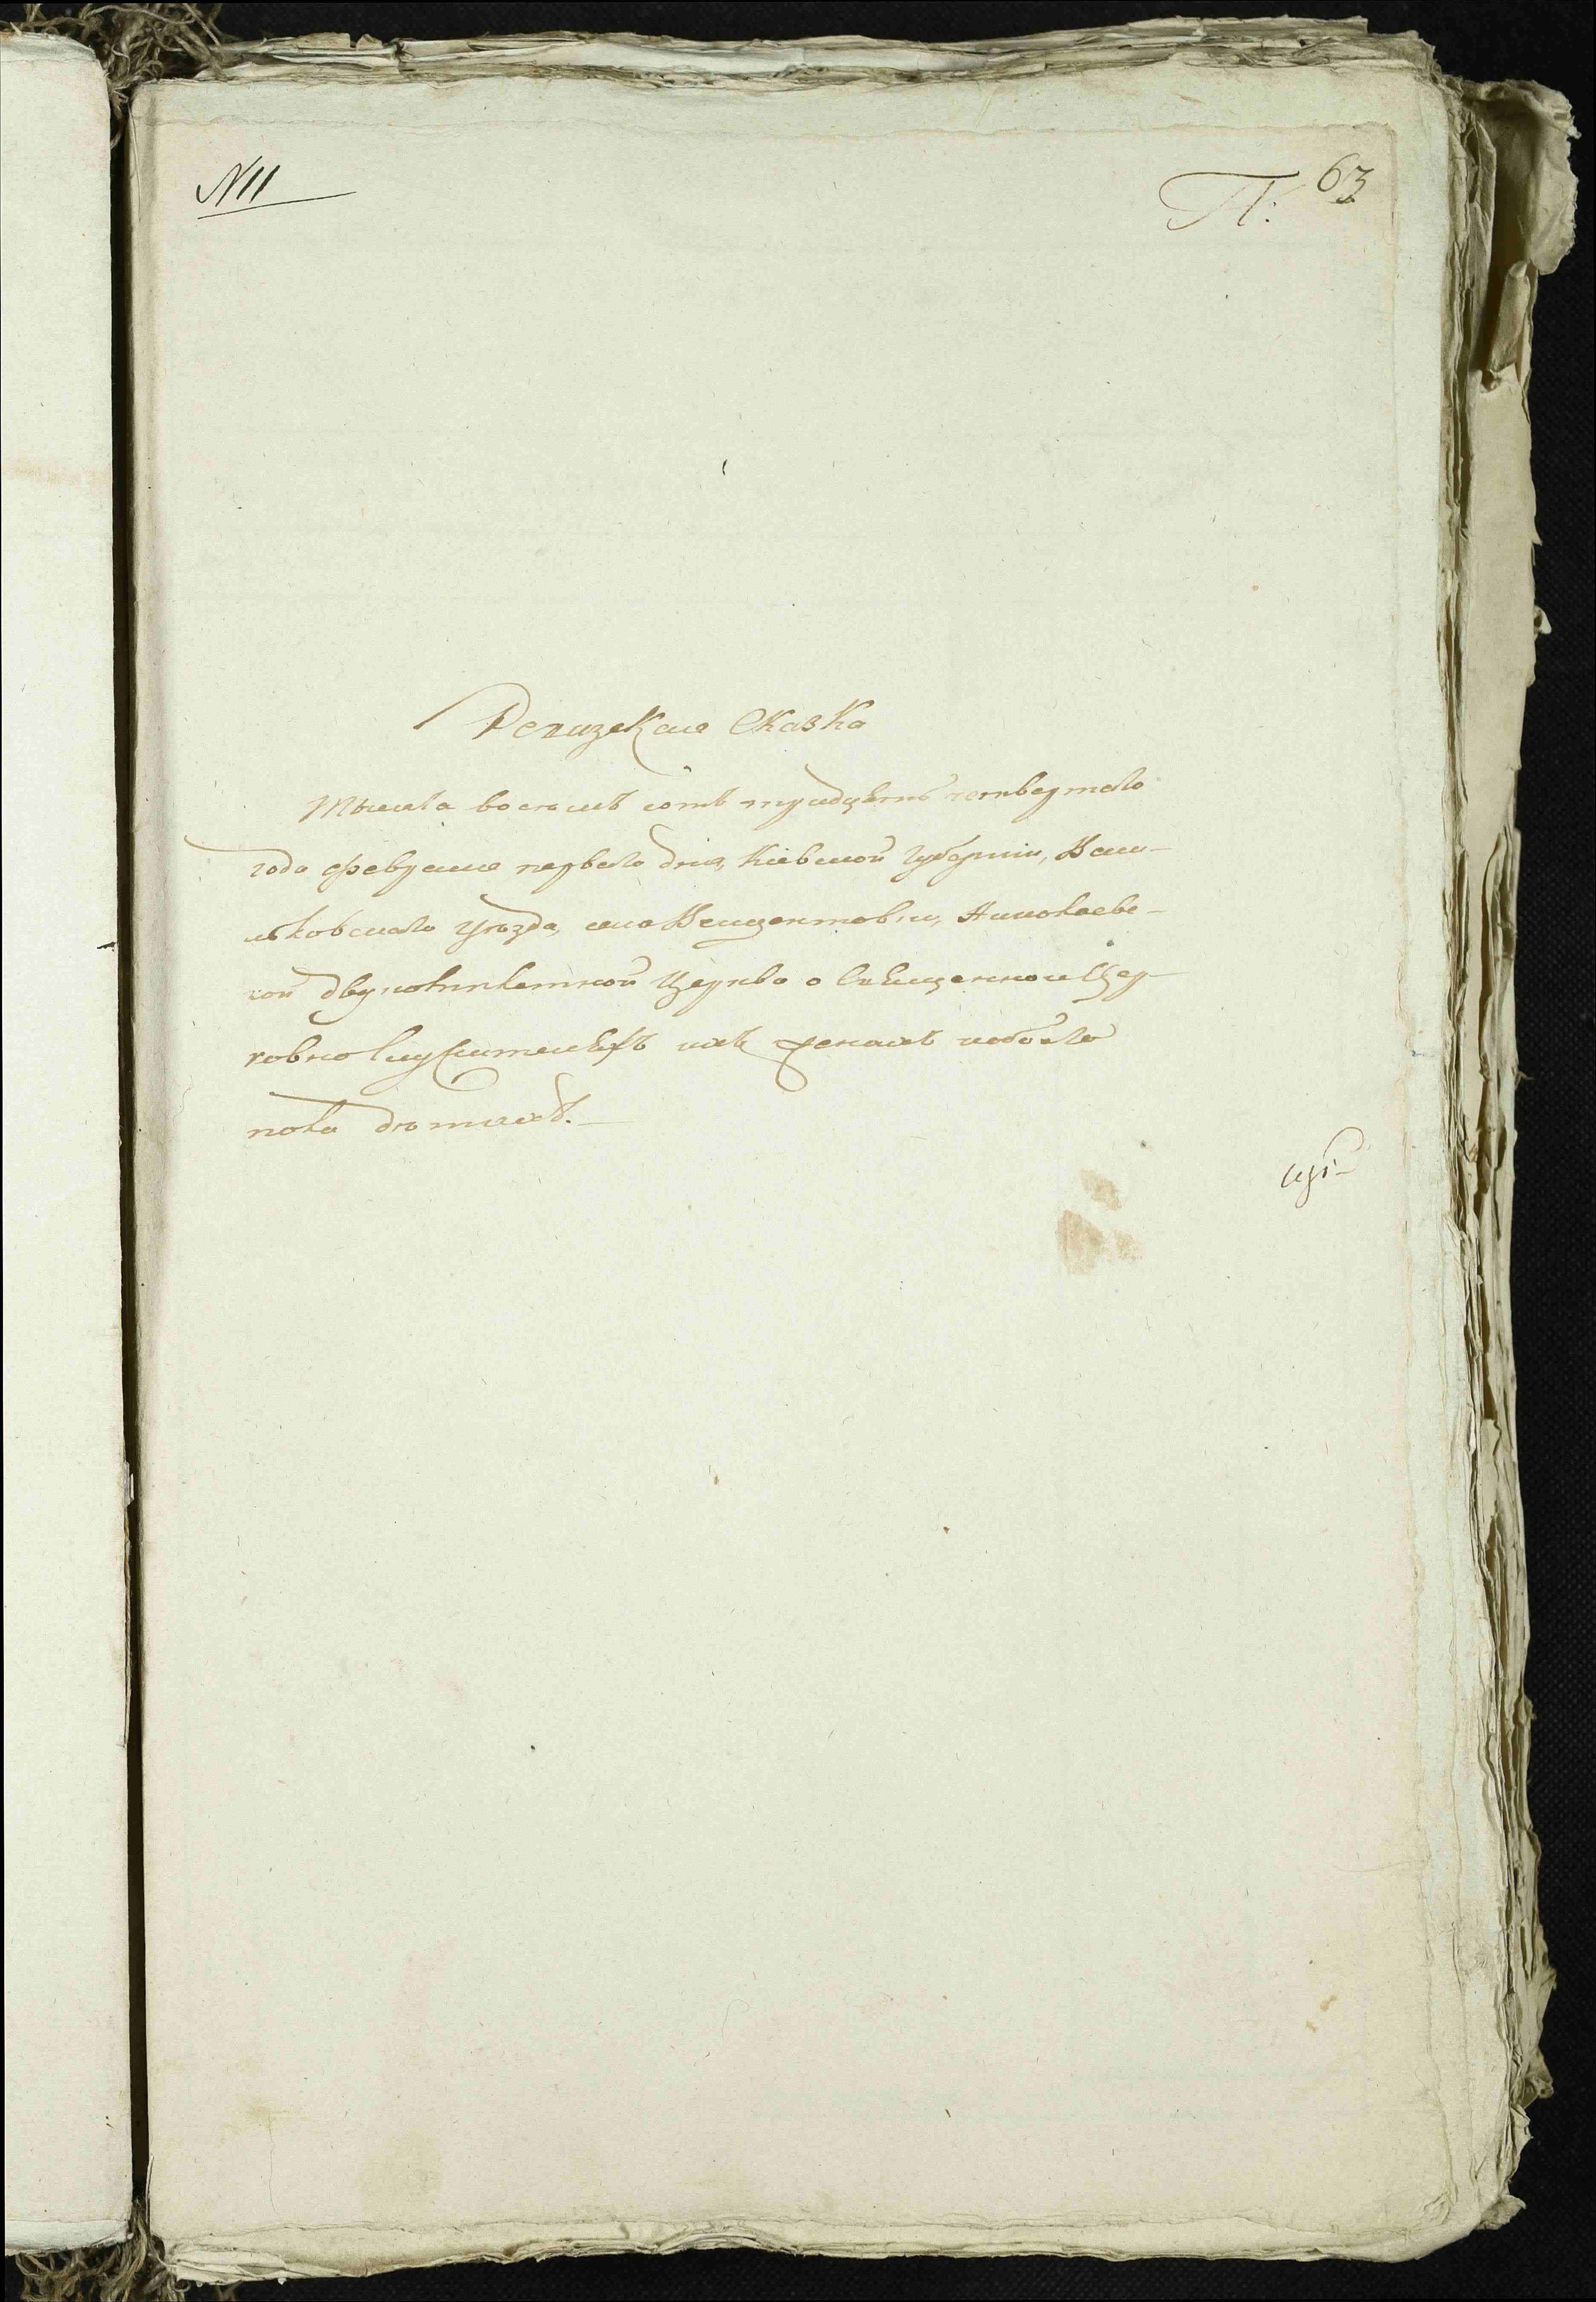 № 11
П: 63
Ревизская Сказка
Тысяча восемь сотъ тридцать четвертаго
года февраля перваго дня, Кіевской Губерніи, Василь-
ковскаго Уѣзда, села Винцентовки, Николаевс-
кой двуповытной Церкви о Священно и Цер-
ковно Служителяхъ ихъ женахъ и обоего
пола дѣтяхъ.